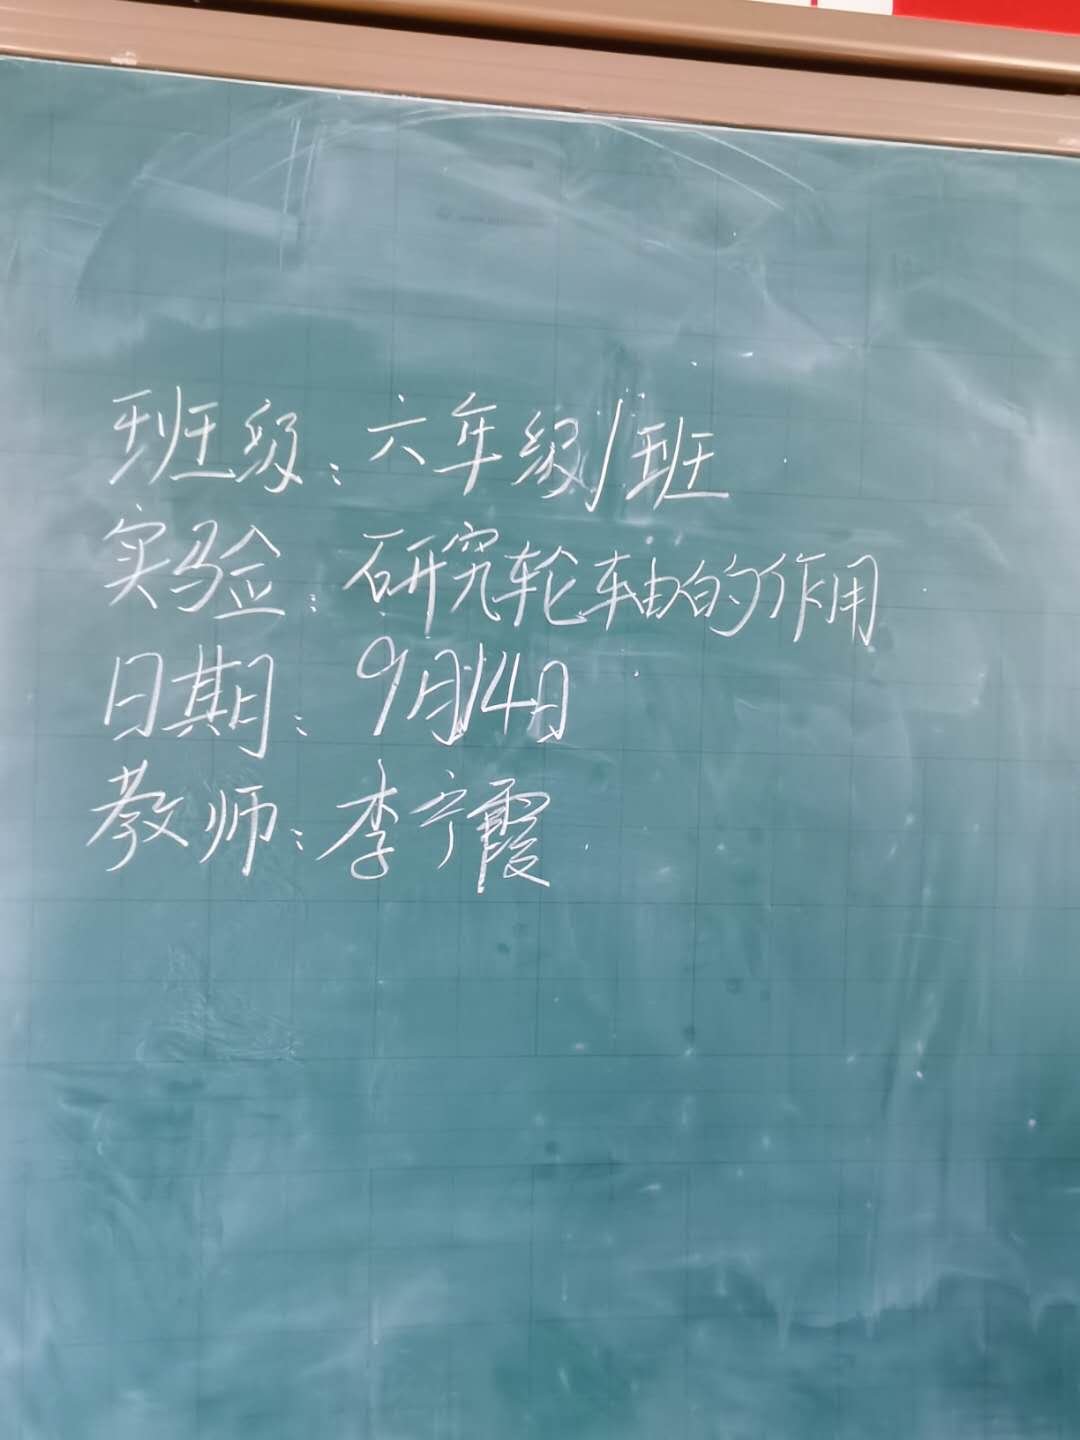 班级：六年级1班
实验：研究轮轴的作用
日期：9月14日
教师：李宁霞